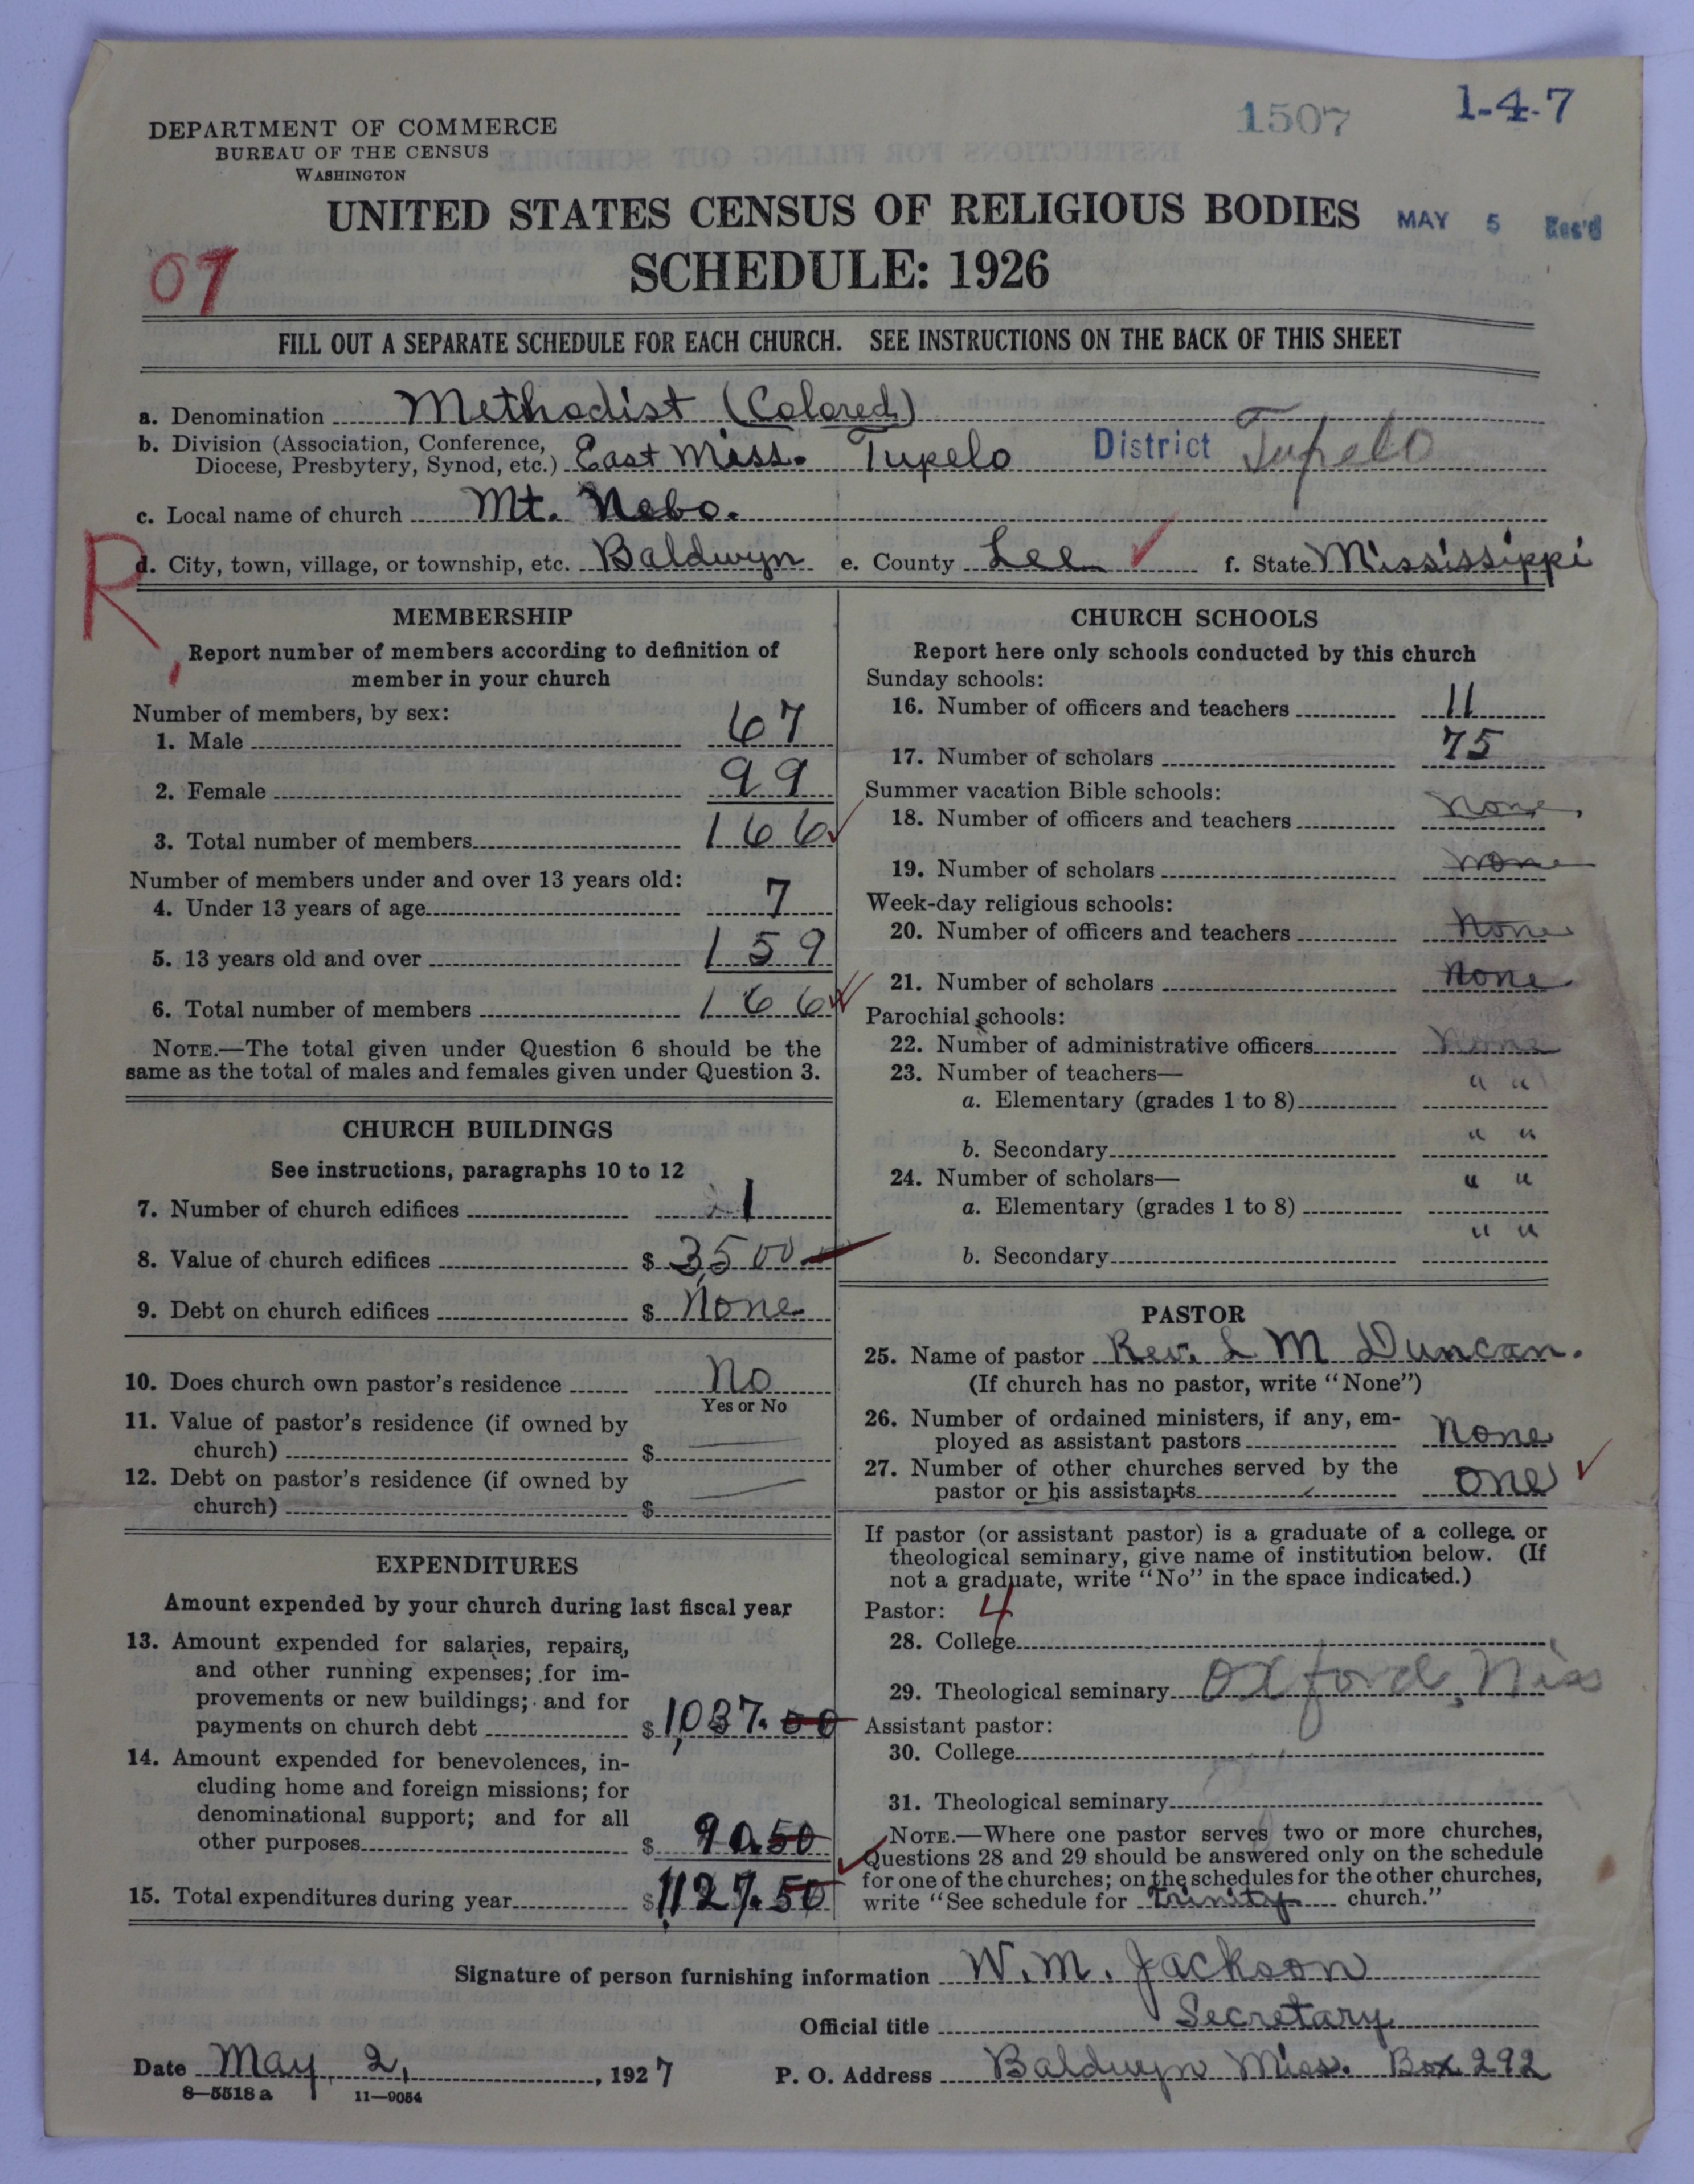 1507
1-4-7
DEPARTMENT OF COMMERCE
BUREAU OF THE CENSUS
WASHINGTON
UNITED STATES CENSUS OF RELIGIOUS BODIES
MAY 5 Rec'd
SCHEDULE: 1926
07
FILL OUT A SEPARATE SCHEDULE FOR EACH CHURCH. SEE INSTRUCTIONS ON THE BACK OF THIS SHEET
a. Denomination Methodist (Colored)
b. Division (Association, Conference,
Diocese, Presbytery, Synod, etc.) East Miss. Tupelo District Tupelo
c. Local name of church Mt. Nebo.
R
d. City, town, village, or township, etc. Baldwyn e. County Lee f. State Mississippi
MEMBERSHIP
Report number of members according to definition of
member in your church
Number of members, by sex:
1. Male 67
2. Female 99
3. Total number of members 166
Number of members under and over 13 years old:
4. Under 13 years of age 7
5. 13 years old and over 159
6. Total number of members 166
NOTE.—The total given under Question 6 should be the
same as the total of males and females given under Question 3.
CHURCH BUILDINGS
See instructions, paragraphs 10 to 12
7. Number of church edifices 1
8. Value of church edifices $ 3,500
9. Debt on church edifices $ None
10. Does church own pastor's residence No
Yes or No
11. Value of pastor's residence (if owned by
church) $
12. Debt on pastor's residence (if owned by
church) $
EXPENDITURES
Amount expended by your church during last fiscal year
13. Amount expended for salaries, repairs,
and other running expenses; for im-
provements or new buildings; and for
payments on church debt $ 1,037.00
14. Amount expended for benevolences, in-
cluding home and foreign missions; for
denominational support; and for all
other purposes $ 90.50
15. Total expenditures during year $ 1,127.50
CHURCH SCHOOLS
Report here only schools conducted by this church
Sunday schools:
16. Number of officers and teachers 11
17. Number of scholars 75
Summer vacation Bible schools:
18. Number of officers and teachers None
19. Number of scholars None
Week-day religious schools:
20. Number of officers and teachers None
21. Number of scholars None
Parochial schools:
22. Number of administrative officers None
23. Number of teachers—
a. Elementary (grades 1 to 8) " "
b. Secondary " "
24. Number of scholars—
a. Elementary (grades 1 to 8) " "
b. Secondary " "
PASTOR
25. Name of pastor Rev. L M Duncan.
(If church has no pastor, write "None")
26. Number of ordained ministers, if any, em-
ployed as assistant pastors None
27. Number of other churches served by the
pastor or his assistants one
If pastor (or assistant pastor) is a graduate of a college or
theological seminary, give name of institution below. (If
not a graduate, write "No" in the space indicated.)
Pastor: 4
28. College
29. Theological seminary Oxford, Miss
Assistant pastor:
30. College
31. Theological seminary
NOTE.—Where one pastor serves two or more churches,
Questions 28 and 29 should be answered only on the schedule
for one of the churches; on the schedules for the other churches,
write "See schedule for Trinity church."
Signature of person furnishing information W. M. Jackson
Official title Secretary
Date May 2, , 1927 P. O. Address Baldwyn Miss. Box 292
8—5518 a 11—9054